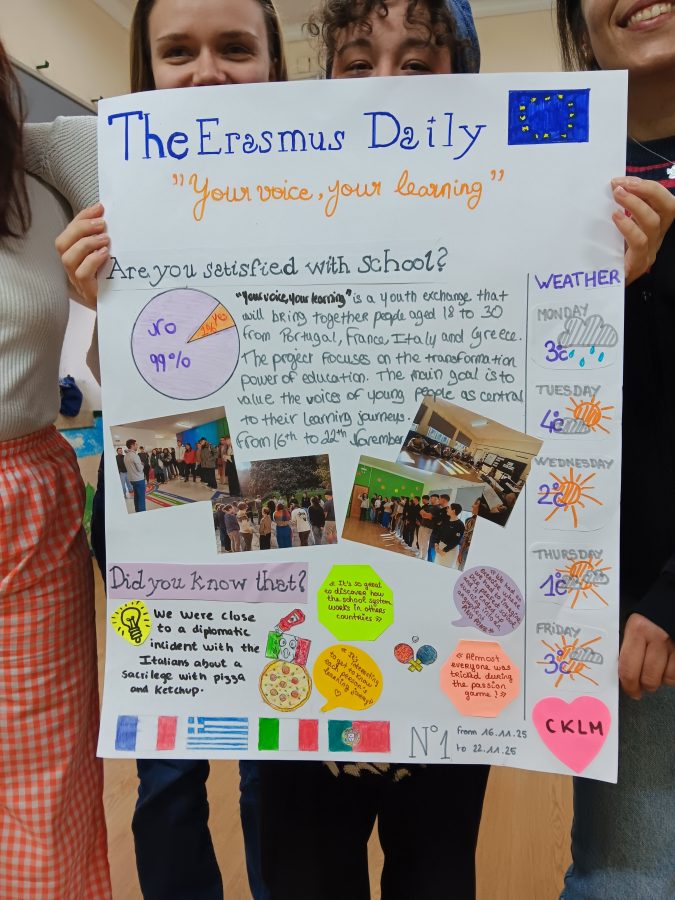 The Erasmus Daily
"Your voice, your learning"
Are you satisfied with school?
NO
99%
yes
1%
"Your voice, your learning" is a youth exchange that
will bring together people aged 18 to 30
from Portugal, France, Italy and Greece.
The project focuses on the transformation
power of education. The main goal is to
value the voice of young people as central
to their learning journeys.
From 16th to 22th November
WEATHER
MONDAY
3°c
TUESDAY
4°c
WEDNESDAY
2°c
THURSDAY
1°c
FRIDAY
3°c
Did you know that?
We were close
to a diplomatic
incident with the
Italians about a
sacrilege with pizza
and ketchup.
« It's so great
to discover how
the school system
works in others
countries »
« It's
interesting
to get to know
each person's
learning journey»
« Almost
everyone was
tricked during
the passion
game ! »
N°1
from 16.11.25
to 22.11.25
CKLM